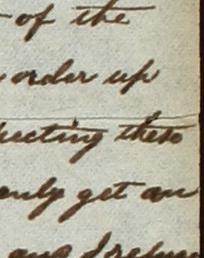 of the
order up
pecting these
only get an
and I refuse